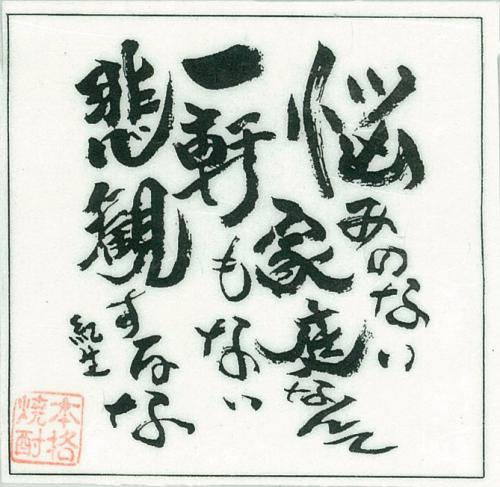 悩みのない
家庭なんて
一軒もない
悲観するな
紀生
本格
焼酎